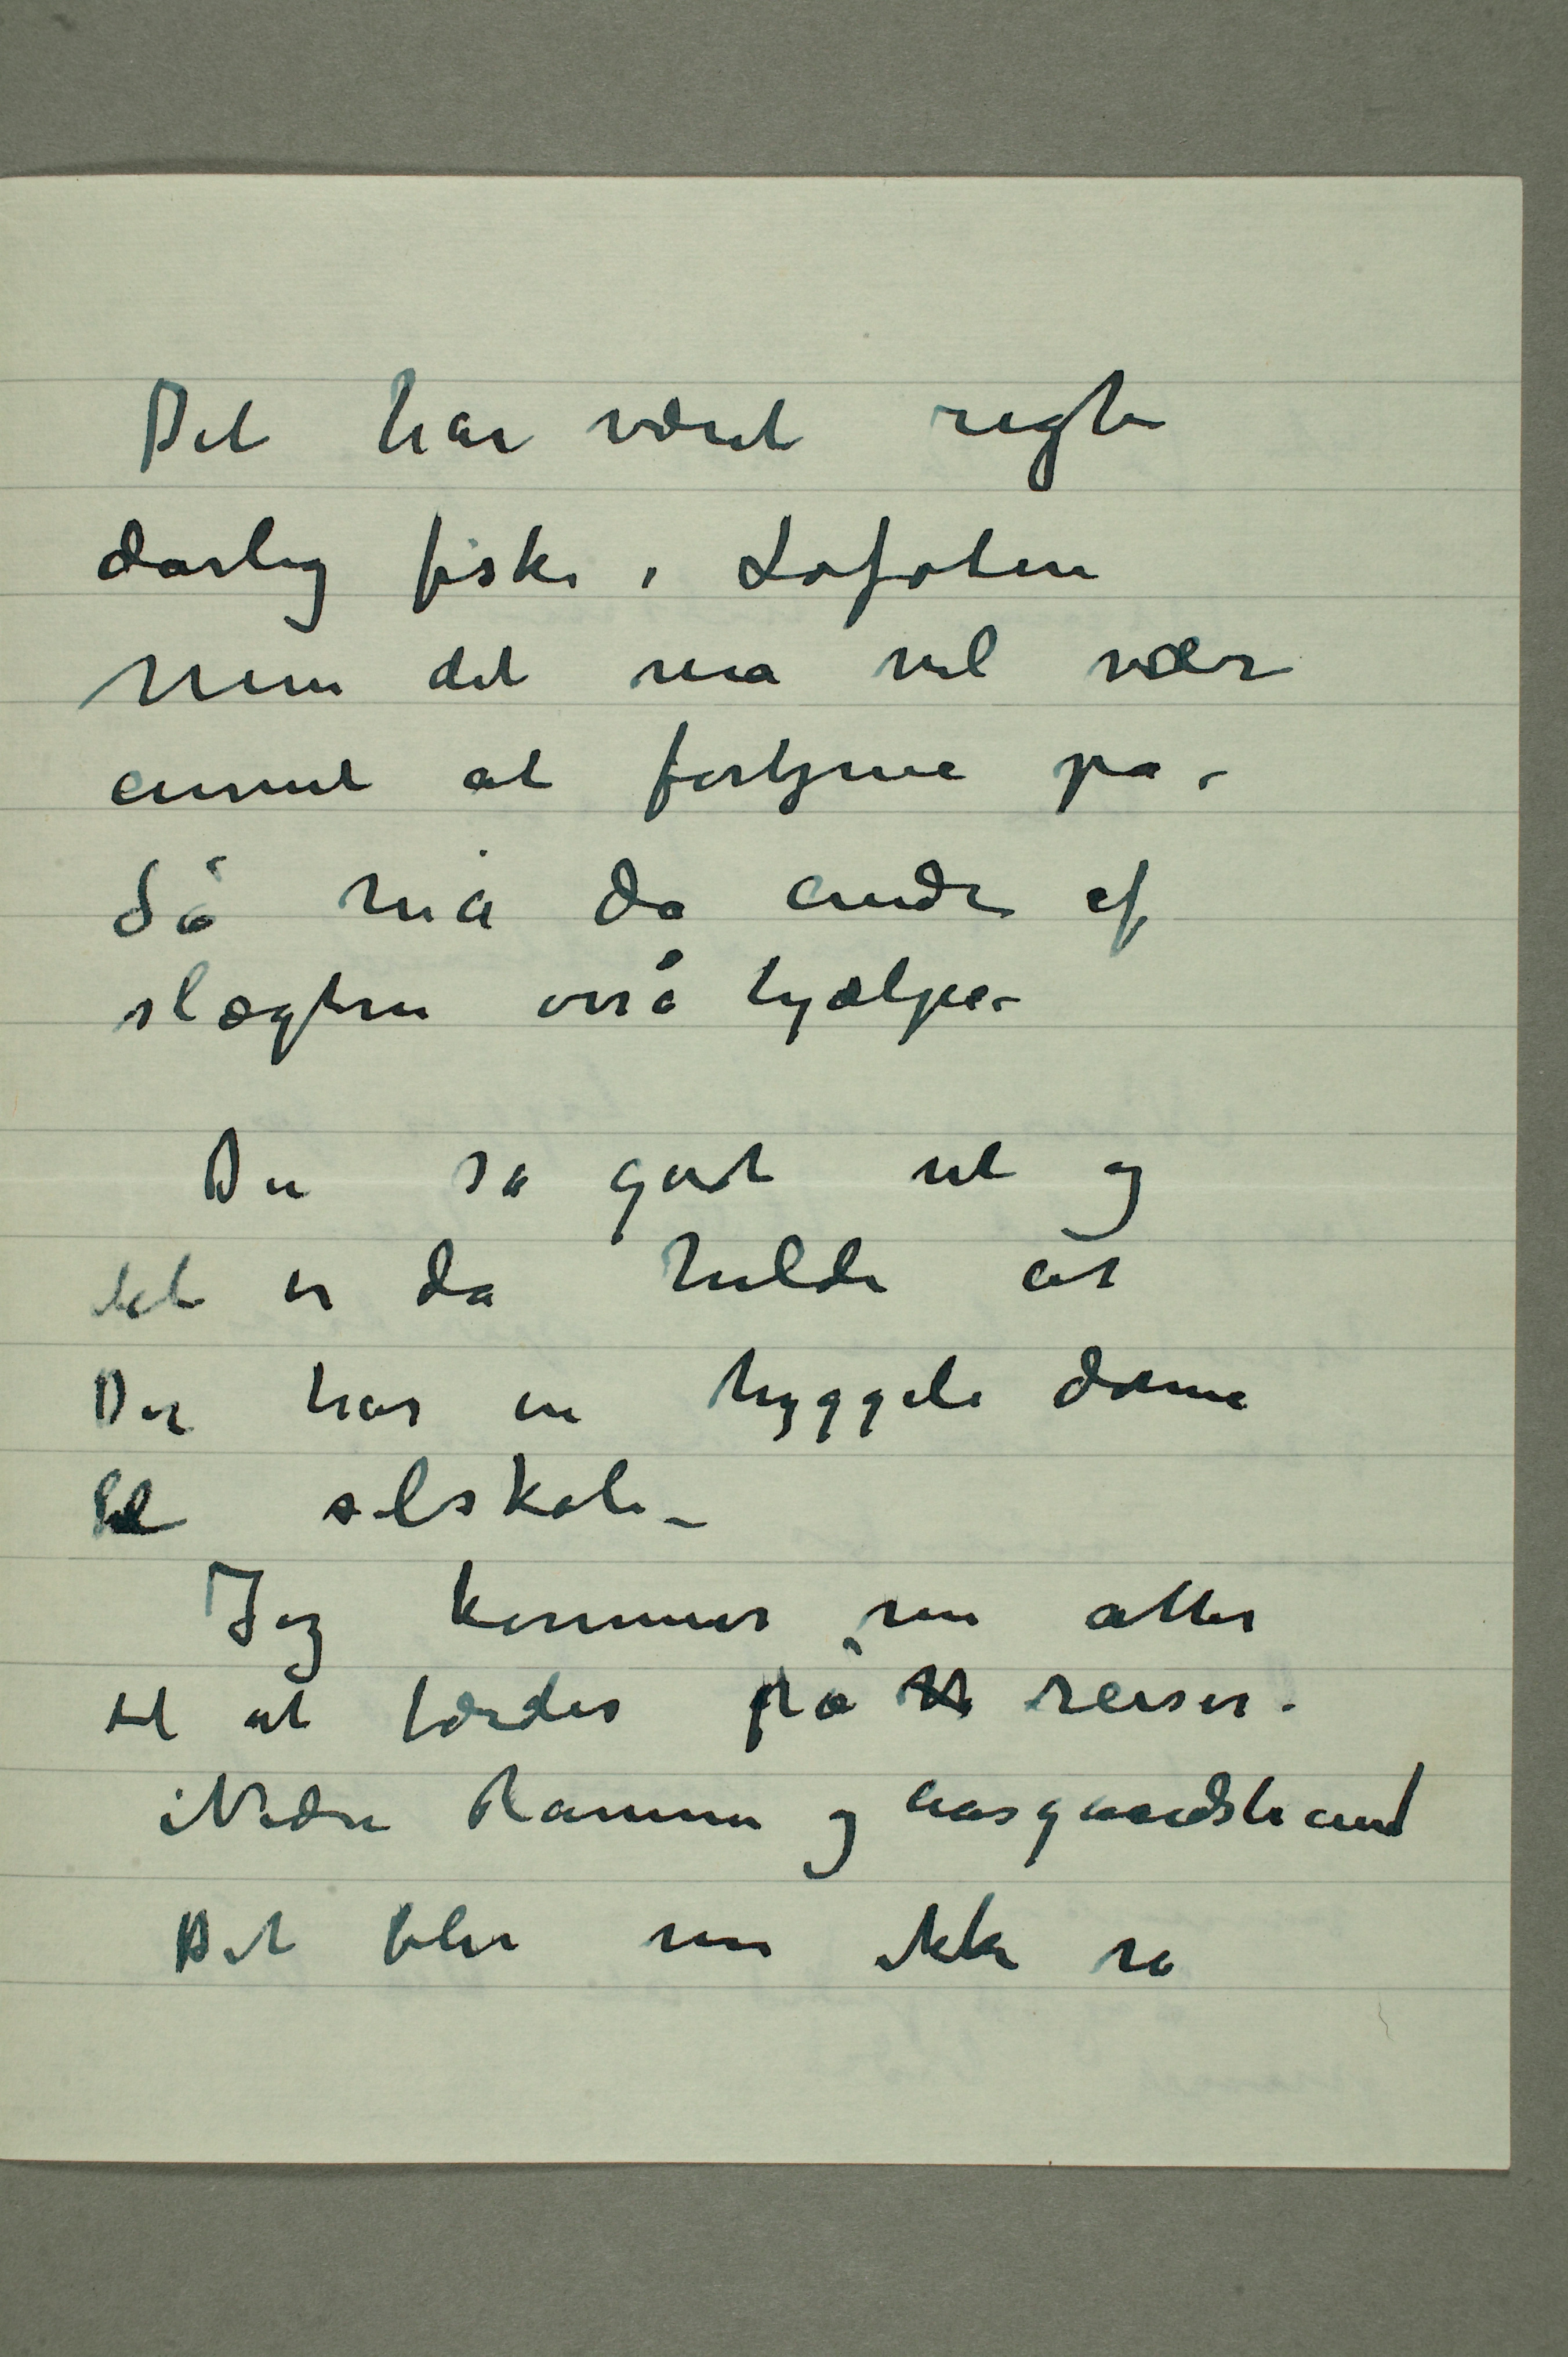 Det har været regte
dårlig fiske i Lofoten
Men det må vel være
annet at fortjene på.
Så må da andre af
slægten også hjælpe–
Du så godt ut og
det er da heldi at
Du har en hyggeli dame
til selskab. –
Jeg kommer nu atter
til at færdes på reiser.
Nedre Ramme og Aasgaardstrand
Det blir nu ikke så